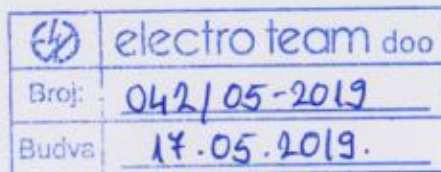 electro team doo
Broj: 042/05-2019
Budva 17.05.2019.